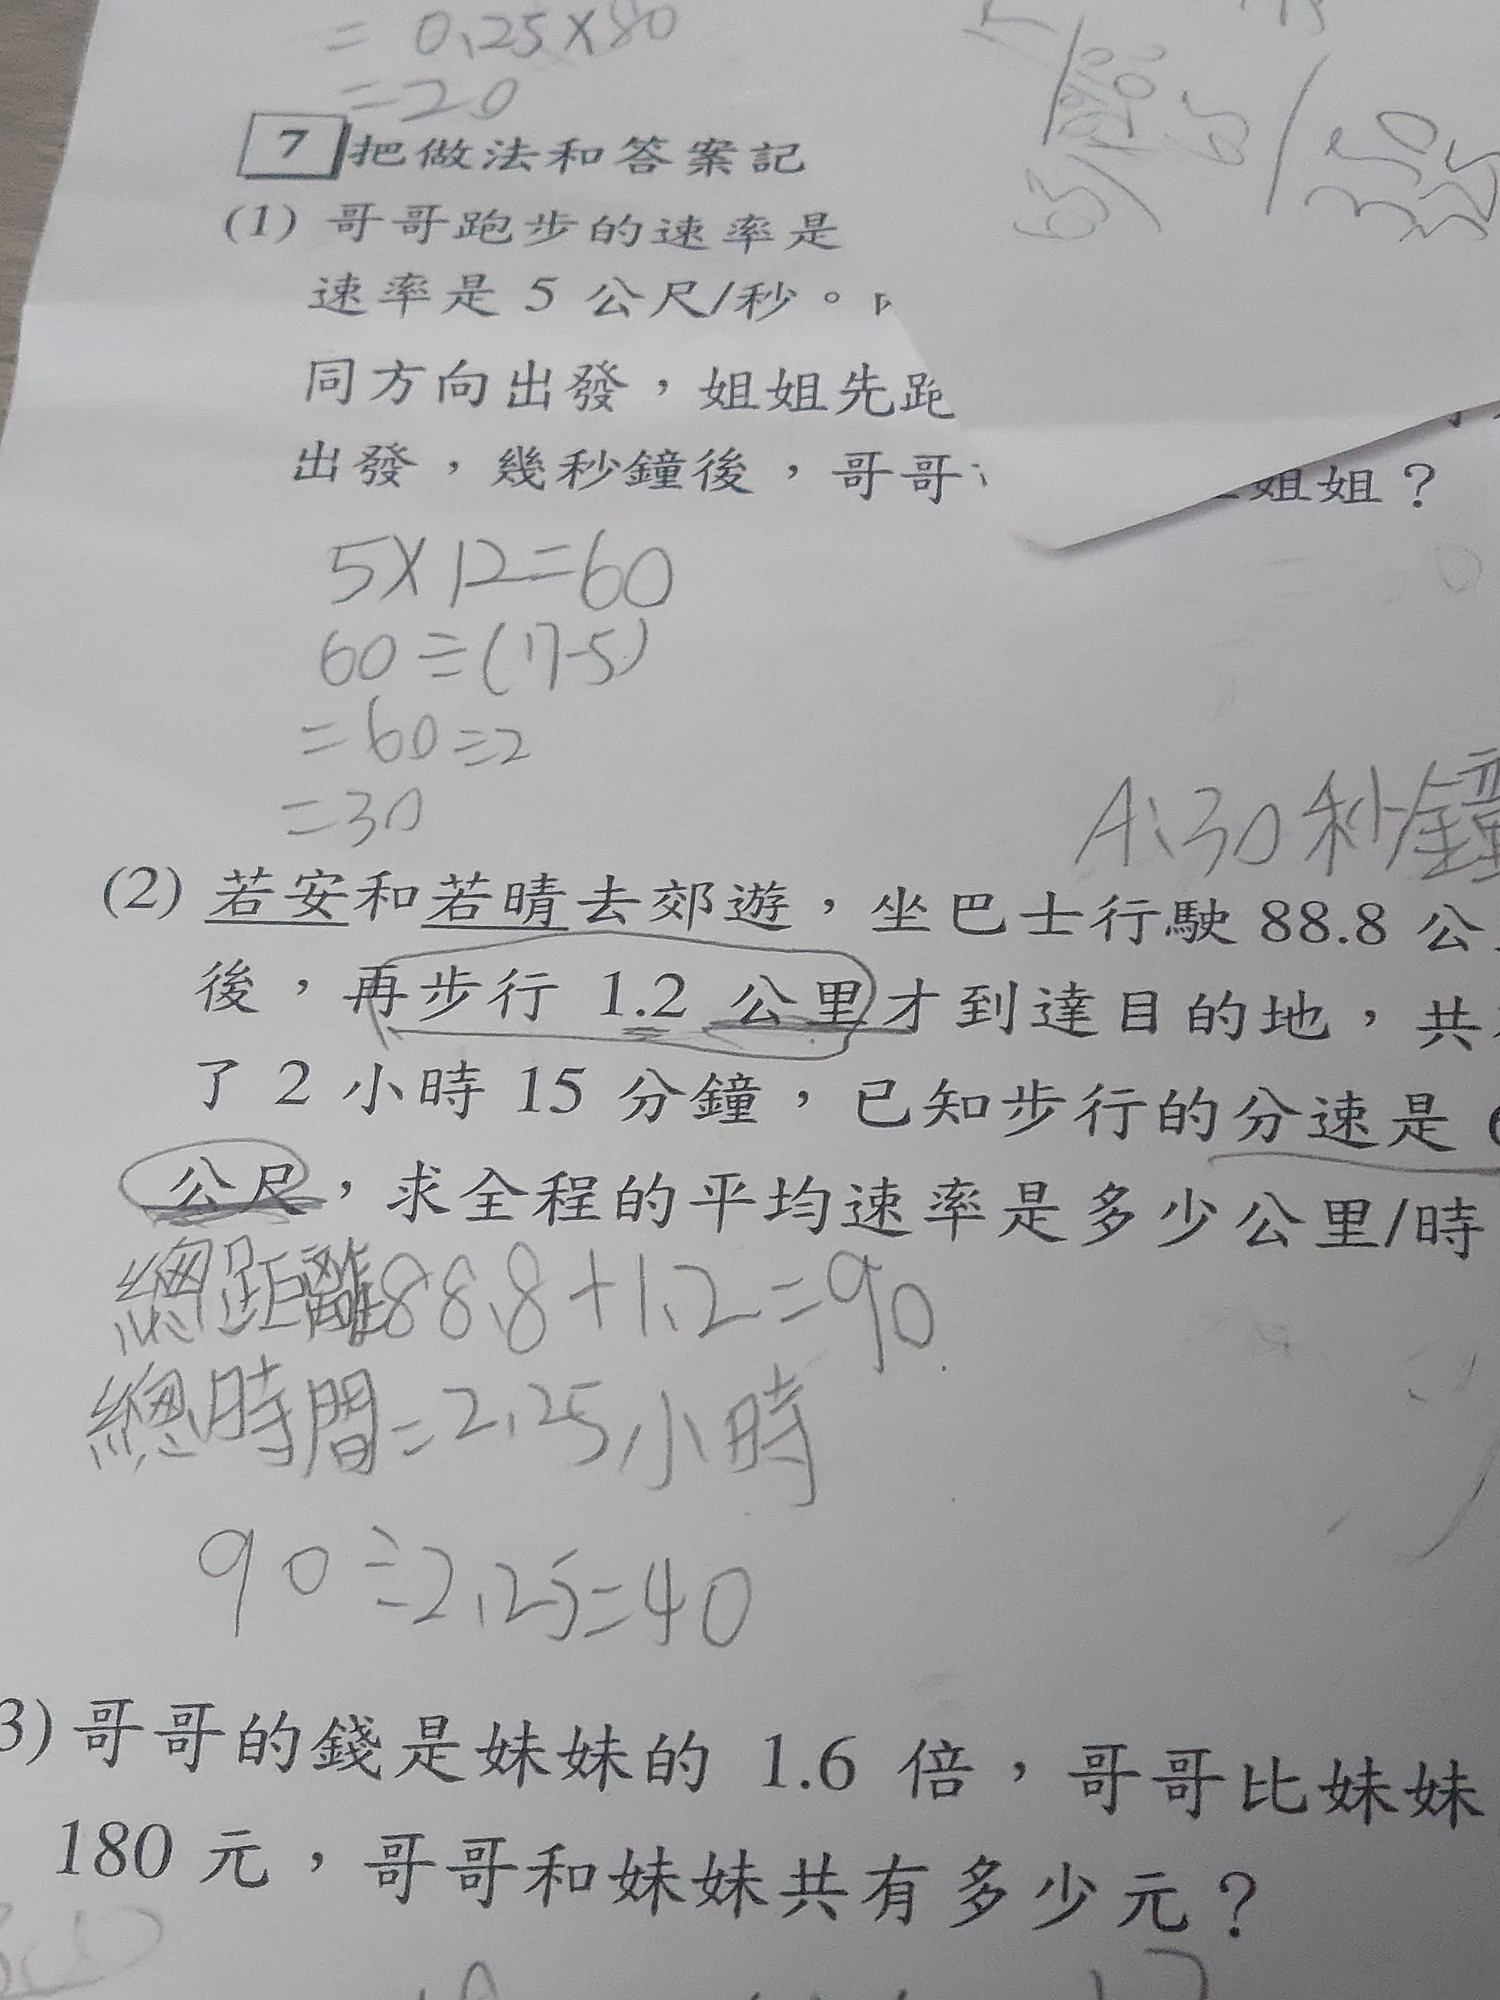 = 0.25×80
=20
7 把做法和答案記
(1) 哥哥跑步的速率是
速率是 5 公尺/秒。
同方向出發，姐姐先跑
出發，幾秒鐘後，哥哥 姐姐？
5×12=60
60÷(17-5)
=60÷2
=30
A:30秒鐘
(2) 若安和若晴去郊遊，坐巴士行駛 88.8 公
後，再步行 1.2 公里才到達目的地，共
了 2 小時 15 分鐘，已知步行的分速是
公尺，求全程的平均速率是多少公里/時
總距離88.8+1.2=90
總時間=2.25小時
90÷2.25=40
3) 哥哥的錢是妹妹的 1.6 倍，哥哥比妹妹
180 元，哥哥和妹妹共有多少元？